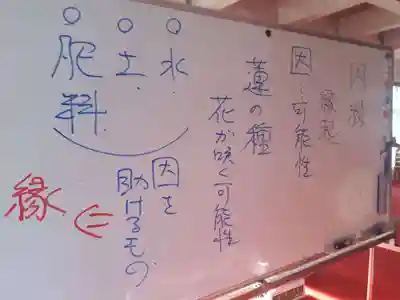 縁起
因…可能性
蓮の種
花が咲く可能性
水・
土・
肥料
因を
助けるもの
縁